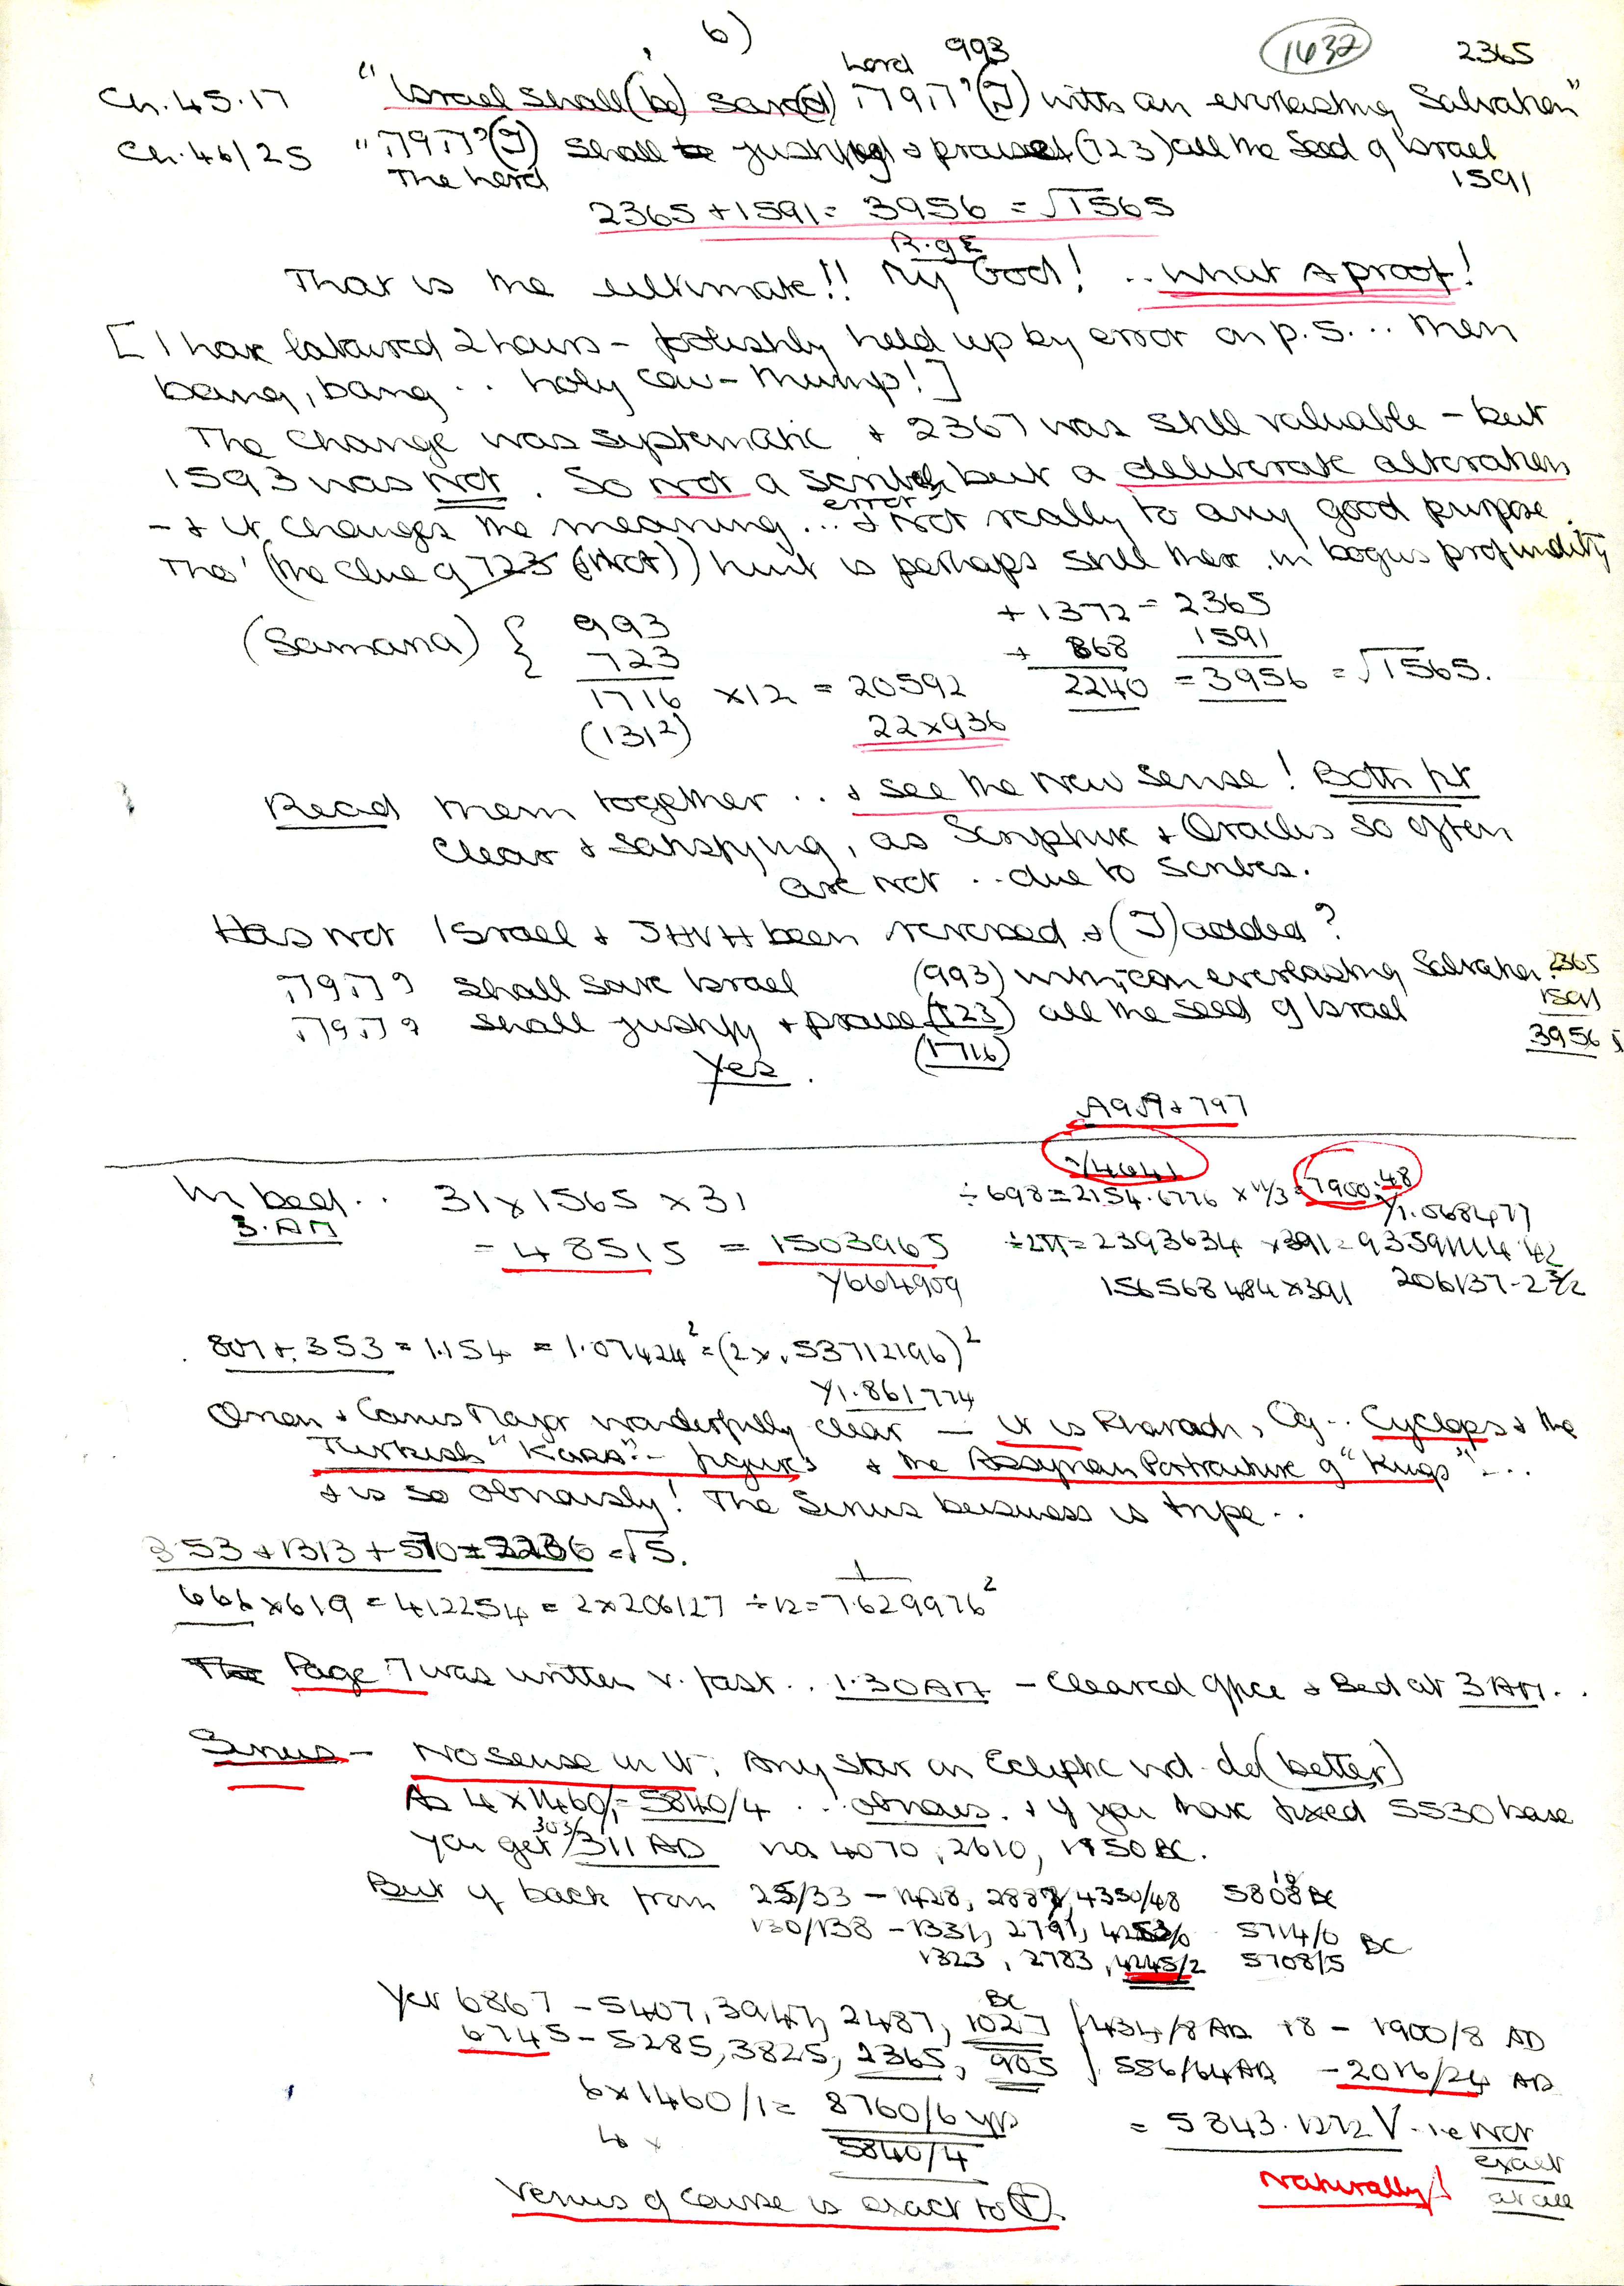 6)
1632
Lord 993 2365
Ch. 45.17 "Israel shall (be) save(d) יהוה (J) with an everlasting Salvation"
Ch. 46/25 "יהוה (J) shall be justify & praise (723) all the Seed of Israel
The Lord 1591
2365 + 1591 = 3956 = √1565
R. of E
That is the ultimate!! My God! .. what a proof!
[I have laboured 2 hours - foolishly held up by error on p. 5... then
bang, bang .. holy cow - thump!]
The change was systematic & 2367 was still valuable - but
1593 was not. So not a scribal error but a deliberate alteration
- & it changes the meaning... & not really to any good purpose.
Tho' (the clue of 723) hint is perhaps still there in bogus profundity
(Samana) { 993 + 1372 = 2365
723 + 868 1591
1716 x 12 = 20592 2240 = 3956 = √1565.
(131²) 22 x 936
Read them together .. & see the new sense! Both
clear & satisfying, as Scripture & Oracles so often
are not .. due to Scribes.
Has not Israel & JHVH been reversed & (J) added?
יהוה shall save Israel (993) with an everlasting Salvation. 2365
יהוה shall justify & praise (723) all the seed of Israel 1591
Yes. (1716) 3956
797
In bed .. 31 x 1565 x 31 ÷ 698 = 2154.6776 x 11/3 = 7900.48
3. AM
= 48515 = 1503965 ÷ 2π = 2393634 x 391 = 9359
Y664909 156568484 x 391 206137
807 + .353 = 1.154 = 1.07424² = (2 x .53712196)²
Y1.861774
Orion & Canis Major wonderfully clear - it is Pharaoh, Og .. Cyclops & the
Turkish "Karas" - figures & the Assyrian Portraiture of "Kings" ...
& is so obviously! The Sirius business is tripe ..
353 + 1313 + 570 = 2236 = √5.
666 x 619 = 412254 = 2 x 206127 ÷ 12 = 7.629976²
Page 7 was written v. fast .. 1.30 AM - cleared office & Bed at 3 AM ..
Sirius - No sense in it; Any Star on Ecliptic wd. do (better)
As 4 x 1460/1 = 5840/4 ... obvious. & if you have fixed 5530 base
you get 303/311 AD via 4070, 2610, 1150 BC.
But if back from 25/33 - 1428, 2887, 4350/48 5808 BC
130/138 - 1331, 2791, 5714/0 BC
1323, 2783, 4245/2 5708/5
Yet 6867 - 5407, 3947, 2487, 1027 BC / 434/8 AD +8 - 1900/8 AD
6745 - 5285, 3825, 2365, 905 / 556/64 AD - 2016/24 AD
6 x 1460/1 = 8760/6 yrs = 5843.1272 V. i.e. not
4 x 5840/4 exact
at all
Naturally!
Venus of course is exact to